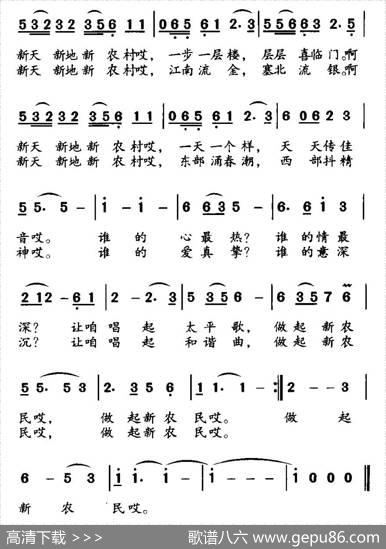 5 3 2 3 2 3 2 3 5 6 1 1 | 0 6 5 6 1 2. 3 | 5 5 6 6 3 2. 5 |
新天 新地新 农村哎, 一步一层楼, 层层 喜临门。啊
新天 新地新 农村哎, 江南流 金, 塞北 流 银。啊
5 3 2 3 2 3 5 6 1 1 | 0 6 5 6 1 2. 3 | 6 0 6 2 3 |
新天 新地新 农村哎, 一天一个样, 天 天传佳
新天 新地新 农村哎, 东部涌春潮, 西 部抖精
5 5 5. 5 – | 1 – 1 – | 6 6 3 5 – | 6. 6 1 3 |
音哎。 谁 的 心最 热? 谁的情最
神哎。 谁 的 爱真 挚? 谁的意深
2 1 2 – 6 1 | 2 – 2. 3 | 5 3 5 6 – | 6 3 5 7 6 |
深? 让咱 唱 起 太平 歌, 做起 新农
沉? 让咱 唱 起 和谐 曲, 做起 新农
5 5. 5 3 | 2. 3 5 6 | 1 1. 1 – :‖ 2 – – 3 |
民哎, 做 起新农 民哎。 做 起
民哎, 做 起新农 民哎。
6 – 5 3 | 1 1. 1 – | 1 – – – | 1 0 0 0 ‖
新 农 民哎。
高清下载 >>>
歌谱八六 www.gepu86.com